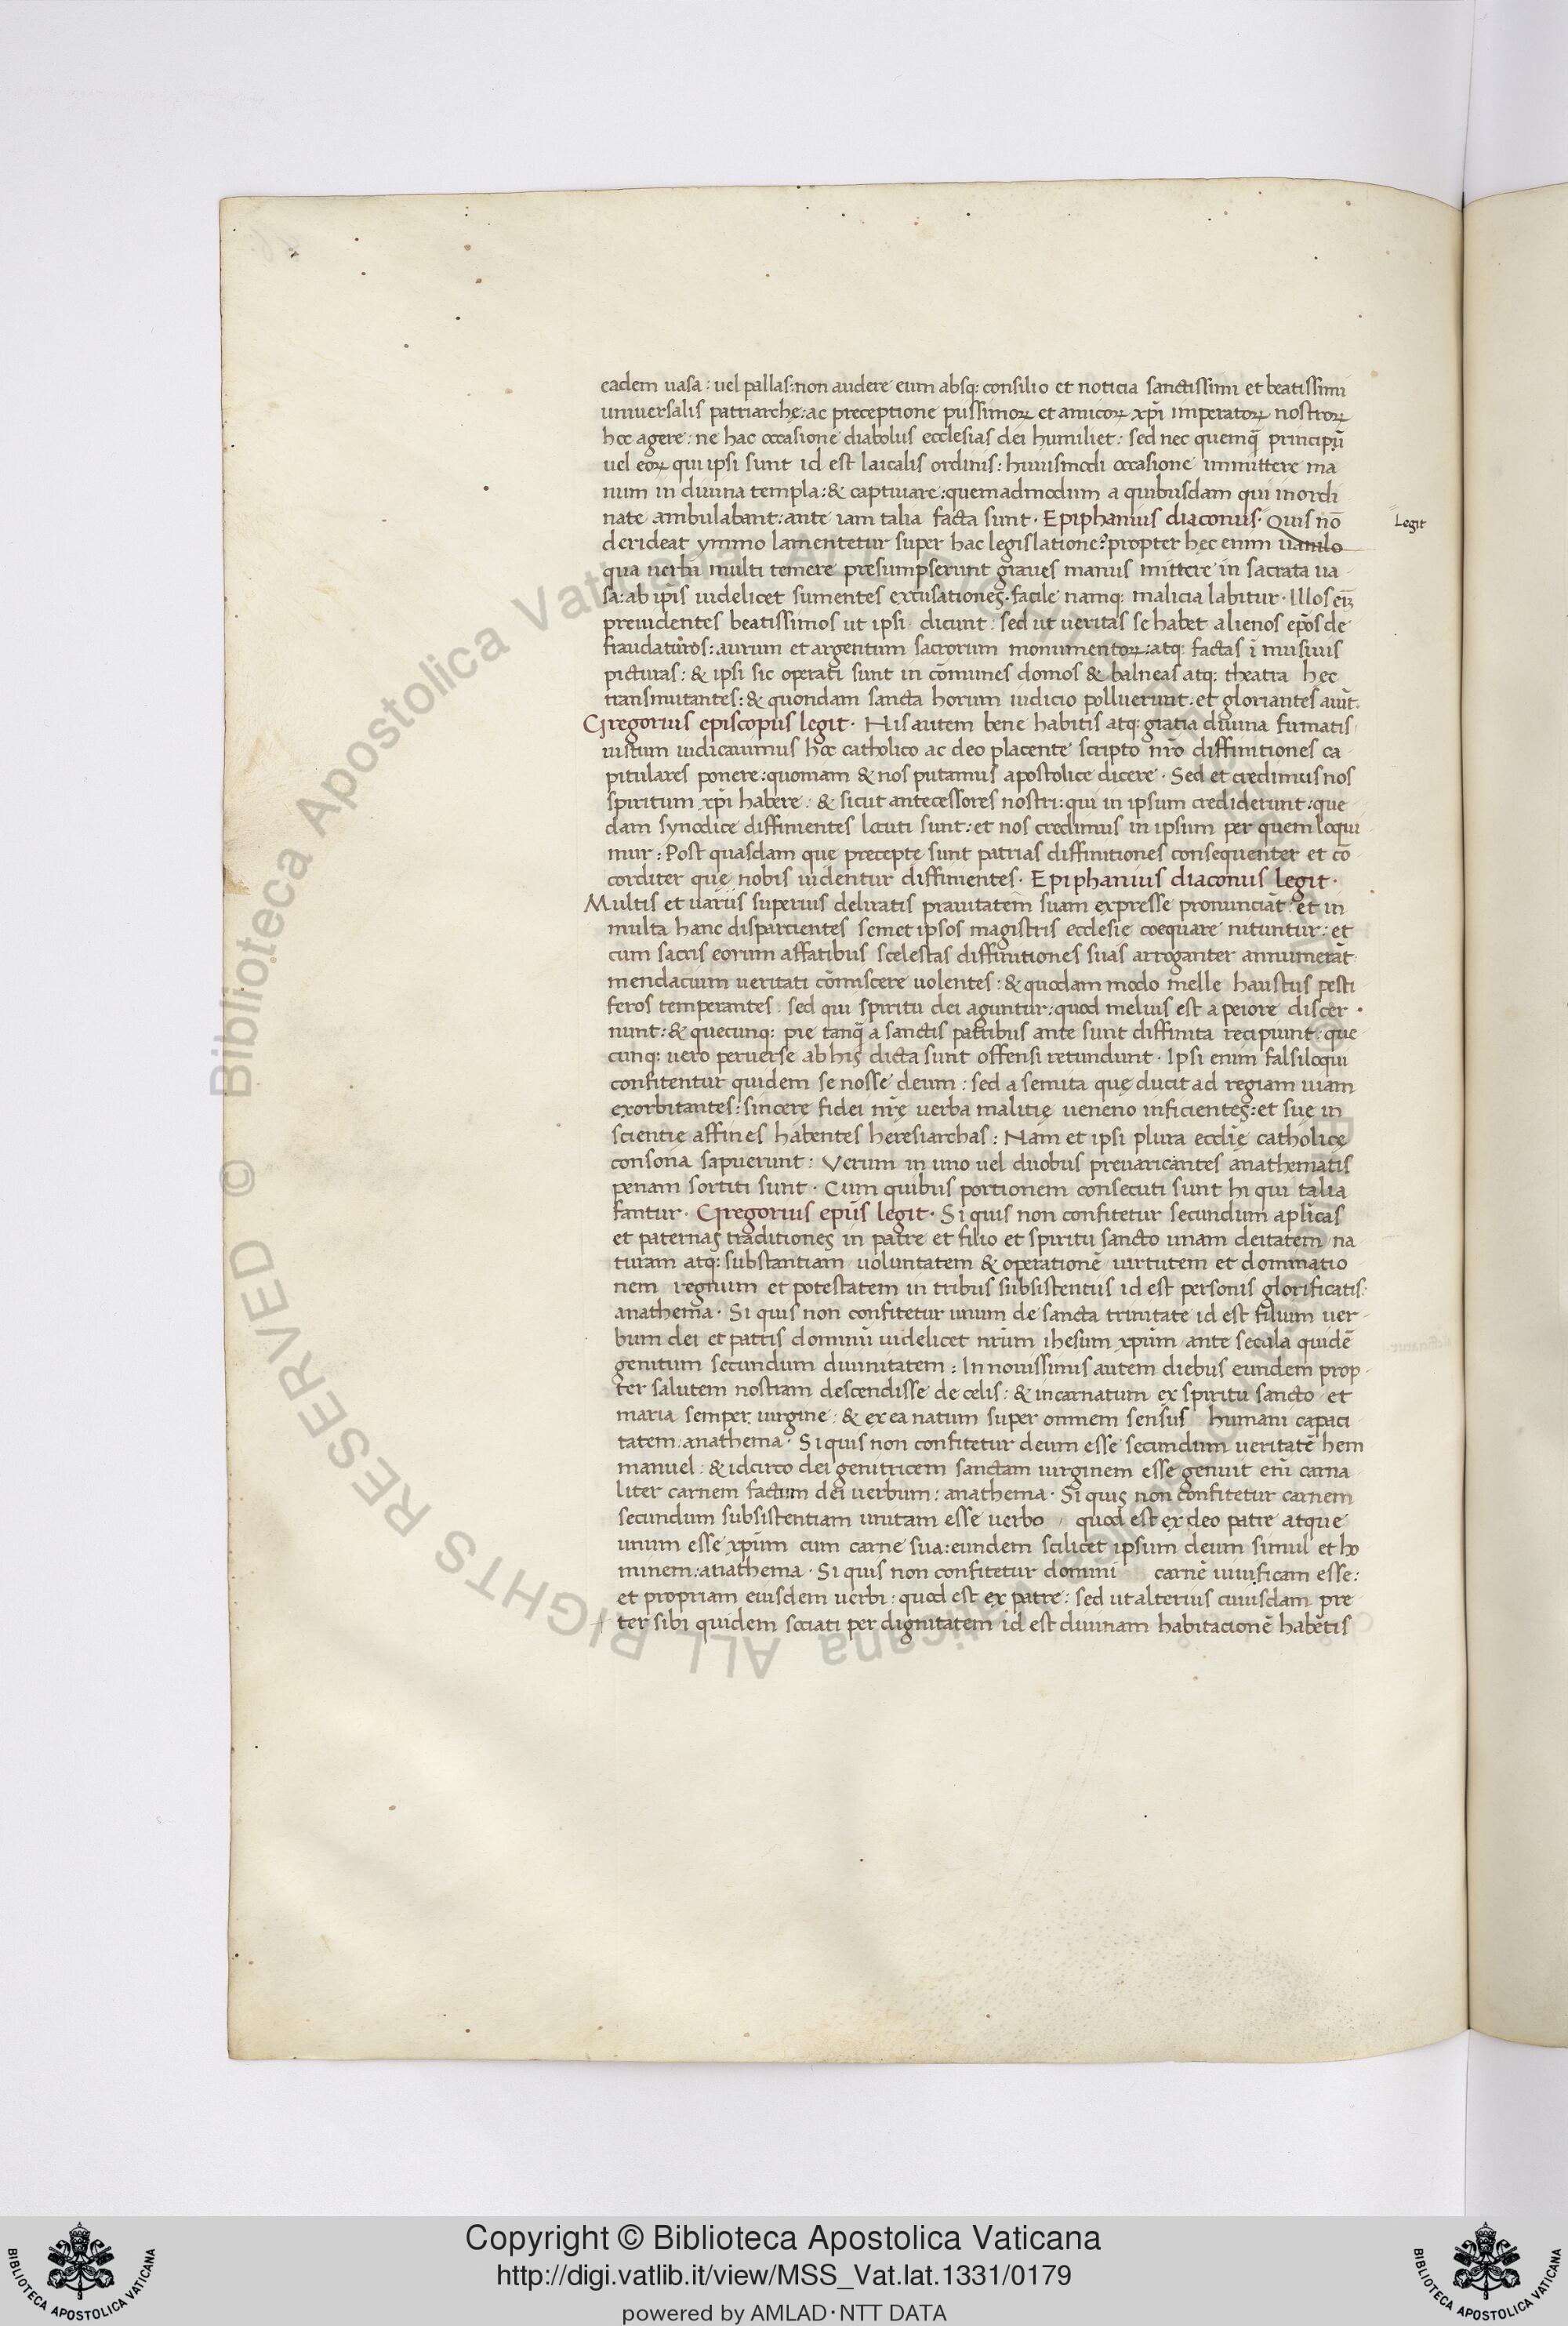 eadem uasa : uel pallas : non audere eum absq; consilio et noticia sanctissimi et beatissimi
uniuersalis patriarche : ac preceptione piissimoꝝ et amicoꝝ xp̄i imperatoꝝ nostroꝝ
hoc agere : ne hac occasione diabolus ecclesias dei humiliet : sed nec quemq̄ principū
uel eoꝝ qui ipsi sunt id est laicalis ordinis : huiusmodi occasione immittere ma
num in diuina templa : & captiuare : quemadmodum a quibusdam qui inordi
nate ambulabant : ante iam talia facta sunt · Epiphanius diaconus · Quis nō
Legit
derideat ymmo lamentetur super hac legislatione? propter hęc enim uanilo
qua uerba multi temere presumpserunt graues manus mittere in sacrata ua
sa : ab ip̄is uidelicet sumentes excusationes · facile namq; malicia labitur · Illos eīz
preuidentes beatissimos ut ipsi dicunt : sed ut ueritas se habet alienos ep̄os de
fraudaturos : aurum et argentum sacrorum monumentoꝝ : atq; factas ī musiuis
picturas : & ipsi sic operati sunt in cōmunes domos & balneas atq; theatra hec
transmutantes : & quondam sancta horum iudicio polluerunt : et gloriantes aiūt.
Gregorius episcopus legit · His autem bene habitis atq; gratia diuina firmatis
uistum iudicauimus hoc catholico ac deo placente scripto nr̄o diffinitiones ca
pitulares ponere : quoniam & nos putamus apostolice dicere · Sed et credimus nos
spiritum xp̄i habere : & sicut antecessores nostri : qui in ipsum crediderunt : que
dam synodice diffinientes locuti sunt : et nos credimus in ipsum per quem loqui
mur : Post quasdam que precepte sunt patrias diffinitiones consequenter et cō
corditer quę nobis uidentur diffinientes · Epiphanius diaconus legit ·
Multis et uariis superius deliratis prauitatem suam expresse pronunciāt : et in
multa hanc dispartientes semet ipsos magistris ecclesie coequare nituntur : et
cum sacris eorum affatibus scelestas diffinitiones suas arroganter annumerāt
mendacium ueritati cōmiscere uolentes : & quodam modo melle haustus pesti
feros temperantes : sed qui spiritu dei aguntur : quod melius est a peiore discer
nunt : & quecunq; pie tanq̄ a sanctis patribus ante sunt diffinita recipiunt : que
cunq; uero peruerse ab his dicta sunt offensi retundunt · Ipsi enim falsiloqui
confitentur quidem se nosse deum : sed a semita quę ducit ad regiam uiam
exorbitantes : sincerę fidei nr̄ę uerba malitię ueneno inficientes : et suę in
scientię affines habentes heresiarchas : Nam et ipsi plura eccl̄ię catholicę
consona sapuerunt : Verum in uno uel duobus preuaricantes anathematis
penam sortiti sunt · Cum quibus portionem consecuti sunt hi qui talia
fantur · Gregorius ep̄us legit · Si quis non confitetur secundum aplicas
et paternas traditiones in patre et filio et spiritu sancto unam deitatem na
turam atq; substantiam uoluntatem & operationē uirtutem et dominatio
nem regnum et potestatem in tribus subsistentiis id est personis glorificatis
anathema · Si quis non confitetur unum de sancta trinitate id est filium uer
bum dei et patris dominū uidelicet nr̄um ihesum xp̄um ante secula quidē
genitum secundum diuinitatem : In nouissimis autem diebus eundem prop
ter salutem nostram descendisse de celis : & incarnatum ex spiritu sancto et
maria semper uirgine : & ex ea natum super omnem sensus humani capaci
tatem : anathema · Si quis non confitetur deum esse secundum ueritatē hem
manuel : & idcirco dei genitricem sanctam uirginem esse genuit eni carna
liter carnem factum dei uerbum : anathema · Si quis non confitetur carnem
secundum subsistentiam unitam esse uerbo quod est ex deo patre atque
unum esse xp̄um cum carne sua : eundem scilicet ipsum deum simul et ho
minem : anathema · Si quis non confitetur domini carnē uiuificam esse :
et propriam eiusdem uerbi : quod est ex patre : sed ut alterius cuiusdam pre
ter sibi quidem sociati per dignitatem id est diuinam habitacionē habētis
Copyright © Biblioteca Apostolica Vaticana
http://digi.vatlib.it/view/MSS_Vat.lat.1331/0179
powered by AMLAD·NTT DATA
BIBLIOTECA APOSTOLICA VATICANA
BIBLIOTECA APOSTOLICA VATICANA
© Biblioteca Apostolica Vaticana ALL RIGHTS RESERVED